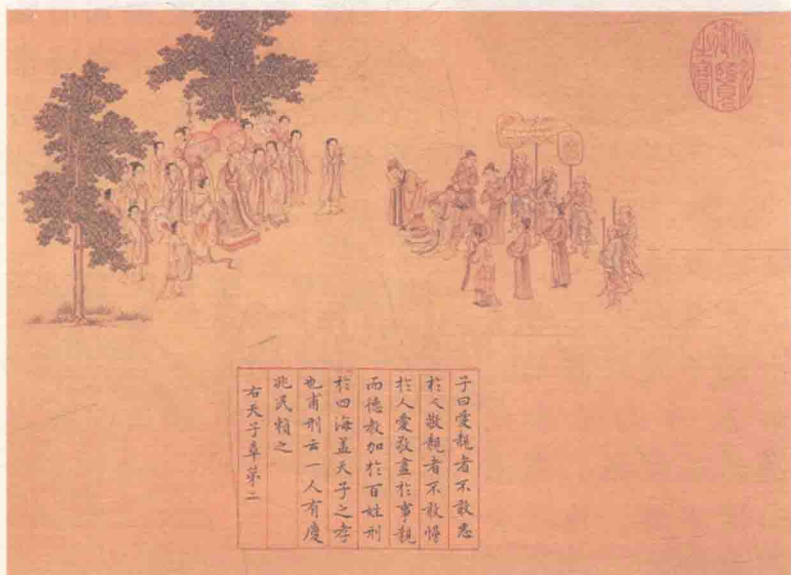 御覽之寶
子曰愛親者不敢惡
於人敬親者不敢慢
於人愛敬盡於事親
而德教加於百姓刑
於四海盖天子之孝
也甫刑云一人有慶
兆民賴之
右天子章第二